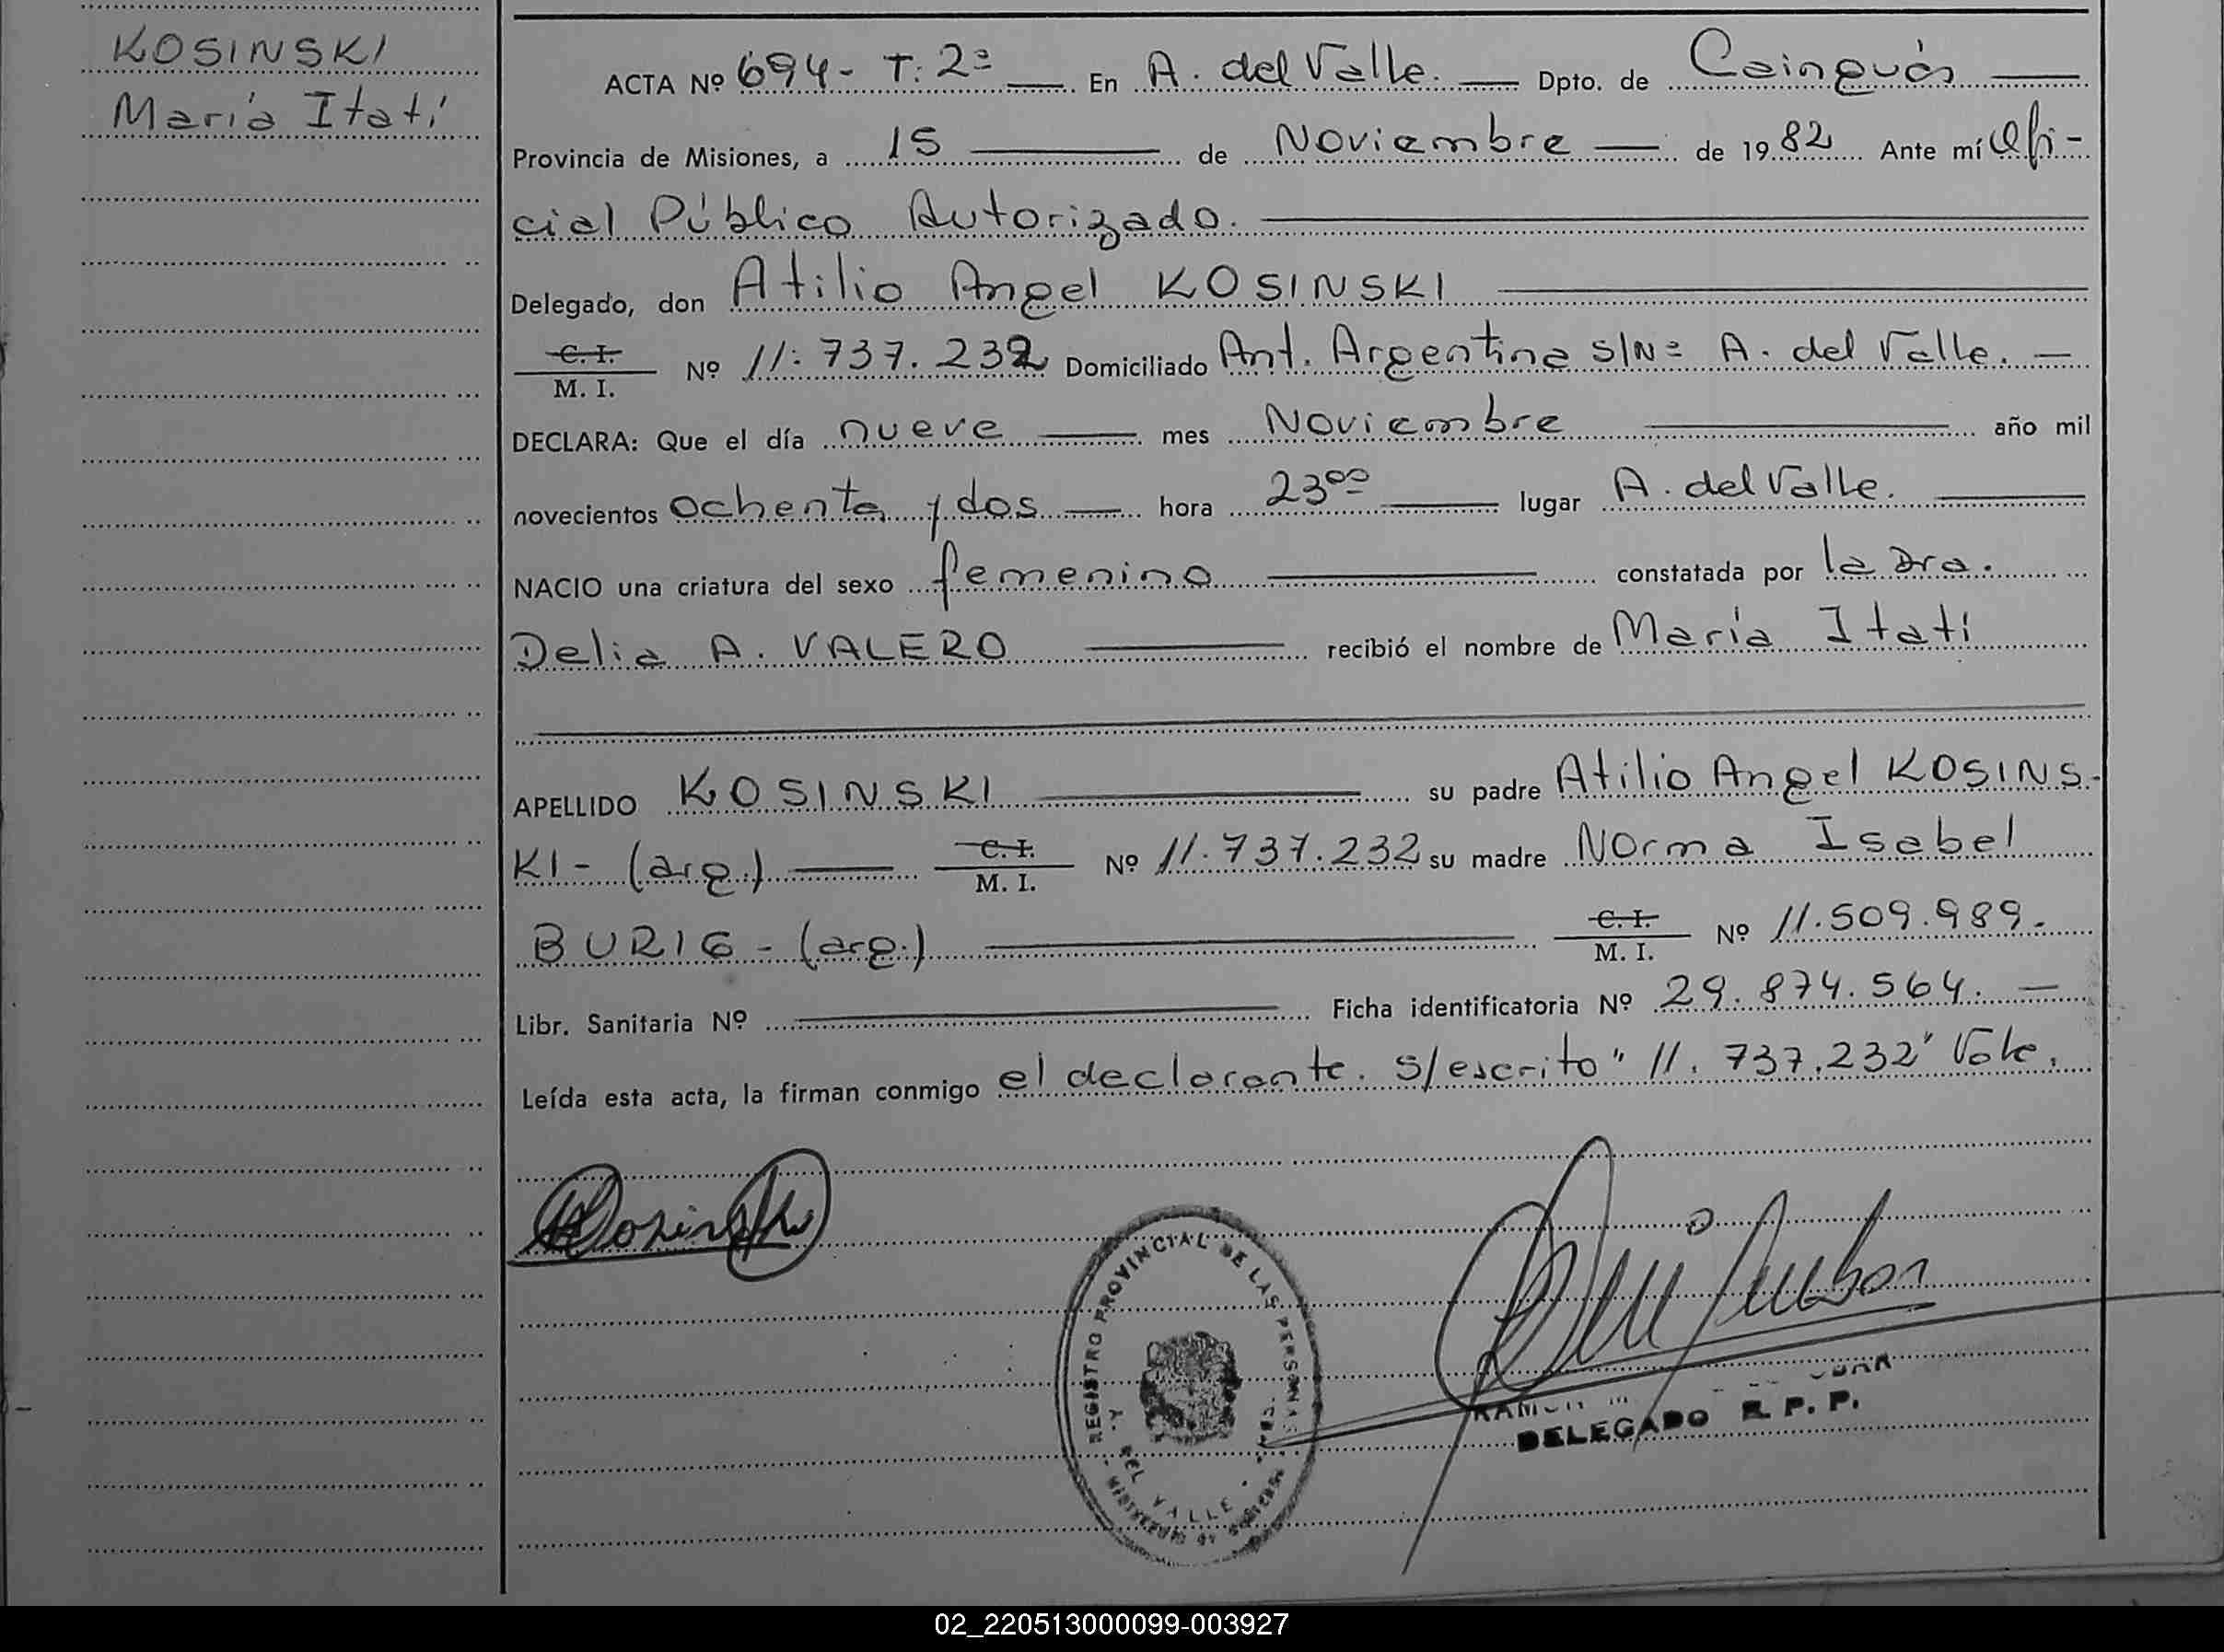 KOSINSKI
María Itatí
ACTA Nº 694- T: 2ª En A. del Valle. Dpto. de Cainguás
Provincia de Misiones, a 15 de Noviembre de 1982 Ante mí Ofi-
cial Público Autorizado.
Delegado, don Atilio Angel KOSINSKI
C. I.
M. I. Nº 11.737.232 Domiciliado Ant. Argentina S/Nº A. del Valle.
DECLARA: Que el día nueve mes Noviembre año mil
novecientos ochenta y dos hora 23⁰⁰ lugar A. del Valle.
NACIO una criatura del sexo femenino constatada por la Dra.
Delia A. VALERO recibió el nombre de María Itatí
APELLIDO KOSINSKI su padre Atilio Angel KOSINS-
KI- (arg.) C. I. M. I. Nº 11.737.232 su madre Norma Isabel
BURIG - (arg.) C. I. M. I. Nº 11.509.989.-
Libr. Sanitaria Nº Ficha identificatoria Nº 29.874.564.
Leída esta acta, la firman conmigo el declarante. S/escrito " 11.737.232" Vale.
Kosinski
REGISTRO PROVINCIAL DE LAS PERSONAS
DEL VALLE
DELEGADO R. P. P.
02_220513000099-003927